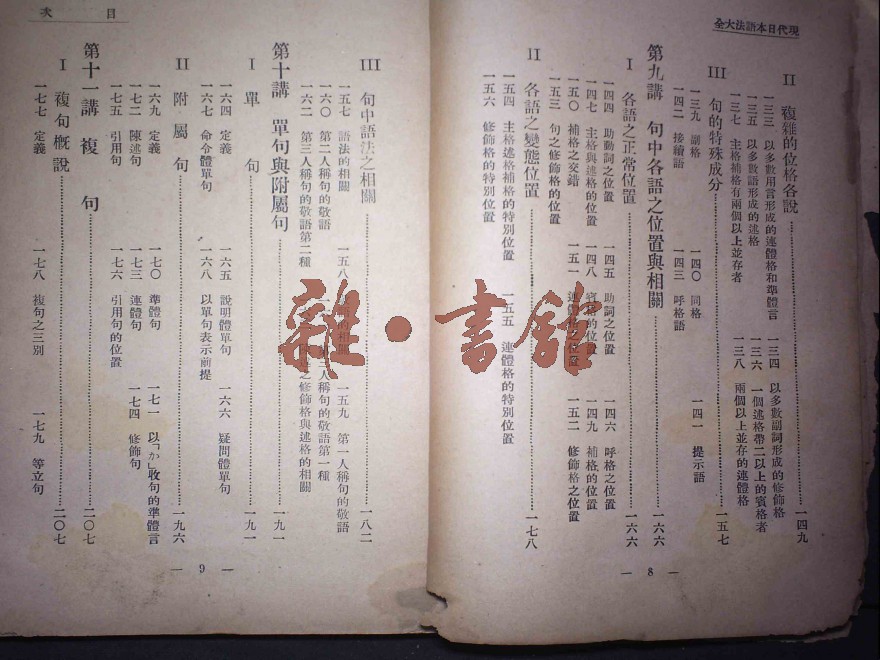 現代日本語法大全
II 複雜的位格各說……一四九
一三三 以多數用言形成的連體格和準體言 一三四 以多數副詞形成的修飾格
一三五 以多數語形成的述格 一三六 一個述格帶二以上的賓格者
一三七 主格補格有兩個以上並存者 一三八 兩個以上並存的連體格
III 句的特殊成分……一五七
一三九 副格 一四〇 同格 一四一 提示語
一四二 接續語 一四三 呼格語
第九講 句中各語之位置與相關……一六六
I 各語之正常位置……一六六
一四四 助動詞之位置 一四五 助詞之位置 一四六 呼格之位置
一四七 主格與述格的位置 一四八 賓格的位置 一四九 補格的位置
一五〇 補格之交錯 一五一 連體格之位置 一五二 修飾格之位置
一五三 句之修飾格的位置
II 各語之變態位置……一七八
一五四 主格述格補格的特別位置 一五五 連體格的特別位置
一五六 修飾格的特別位置
— 8 —
目 次
III 句中語法之相關……一八二
一五七 語法的相關 一五八 的相關 一五九 第一人稱句的敬語
一六〇 第二人稱句的敬語 三人稱句的敬語第一種
一六二 第三人稱句的敬語第二種 之修飾格與述格的相關
第十講 單句與附屬句……一九一
I 單 句……一九一
一六四 定義 一六五 說明體單句 一六六 疑問體單句
一六七 命令體單句 一六八 以單句表示前提
II 附 屬 句……一九六
一六九 定義 一七〇 準體句 一七一 以「か」收句的準體言
一七二 陳述句 一七三 連體句 一七四 修飾句
一七五 引用句 一七六 引用句的位置
第十一講 複 句……二〇七
I 複句概說……二〇七
一七七 定義 一七八 複句之三別 一七九 等立句
— 9 —
雜·書館